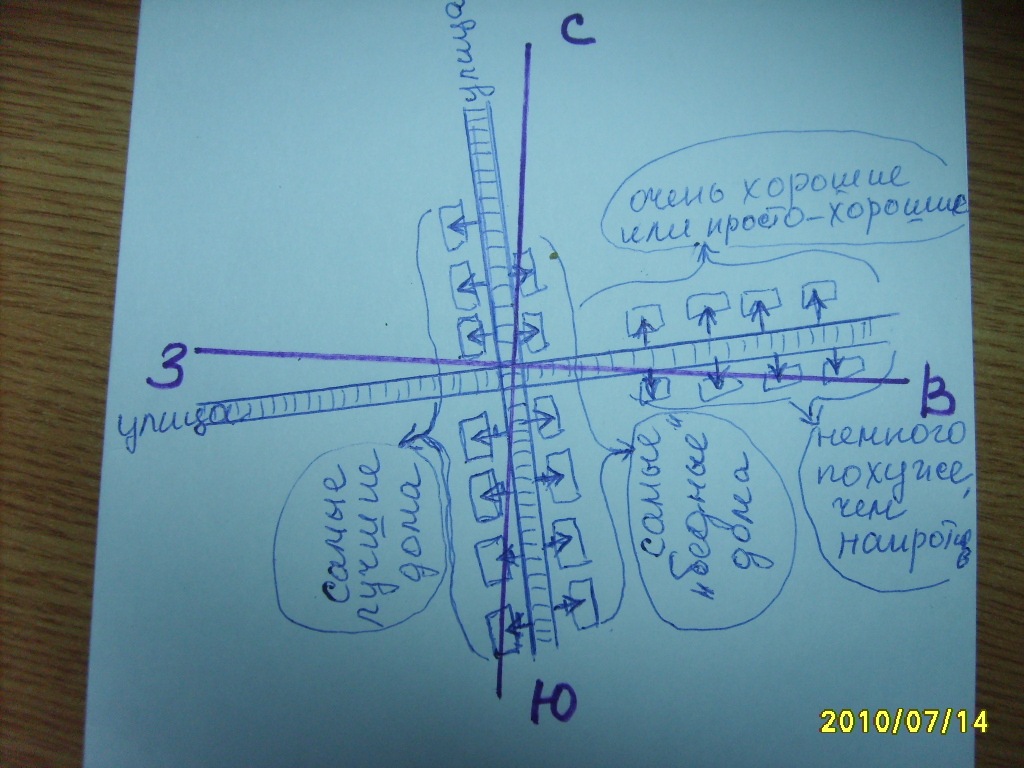 улица
С
очень хорошие
или просто-хорошие
З
В
улица
самые
лучшие
дома
самые
"бедные"
дома
немного
похуже,
чем
напротив
Ю
2010/07/14